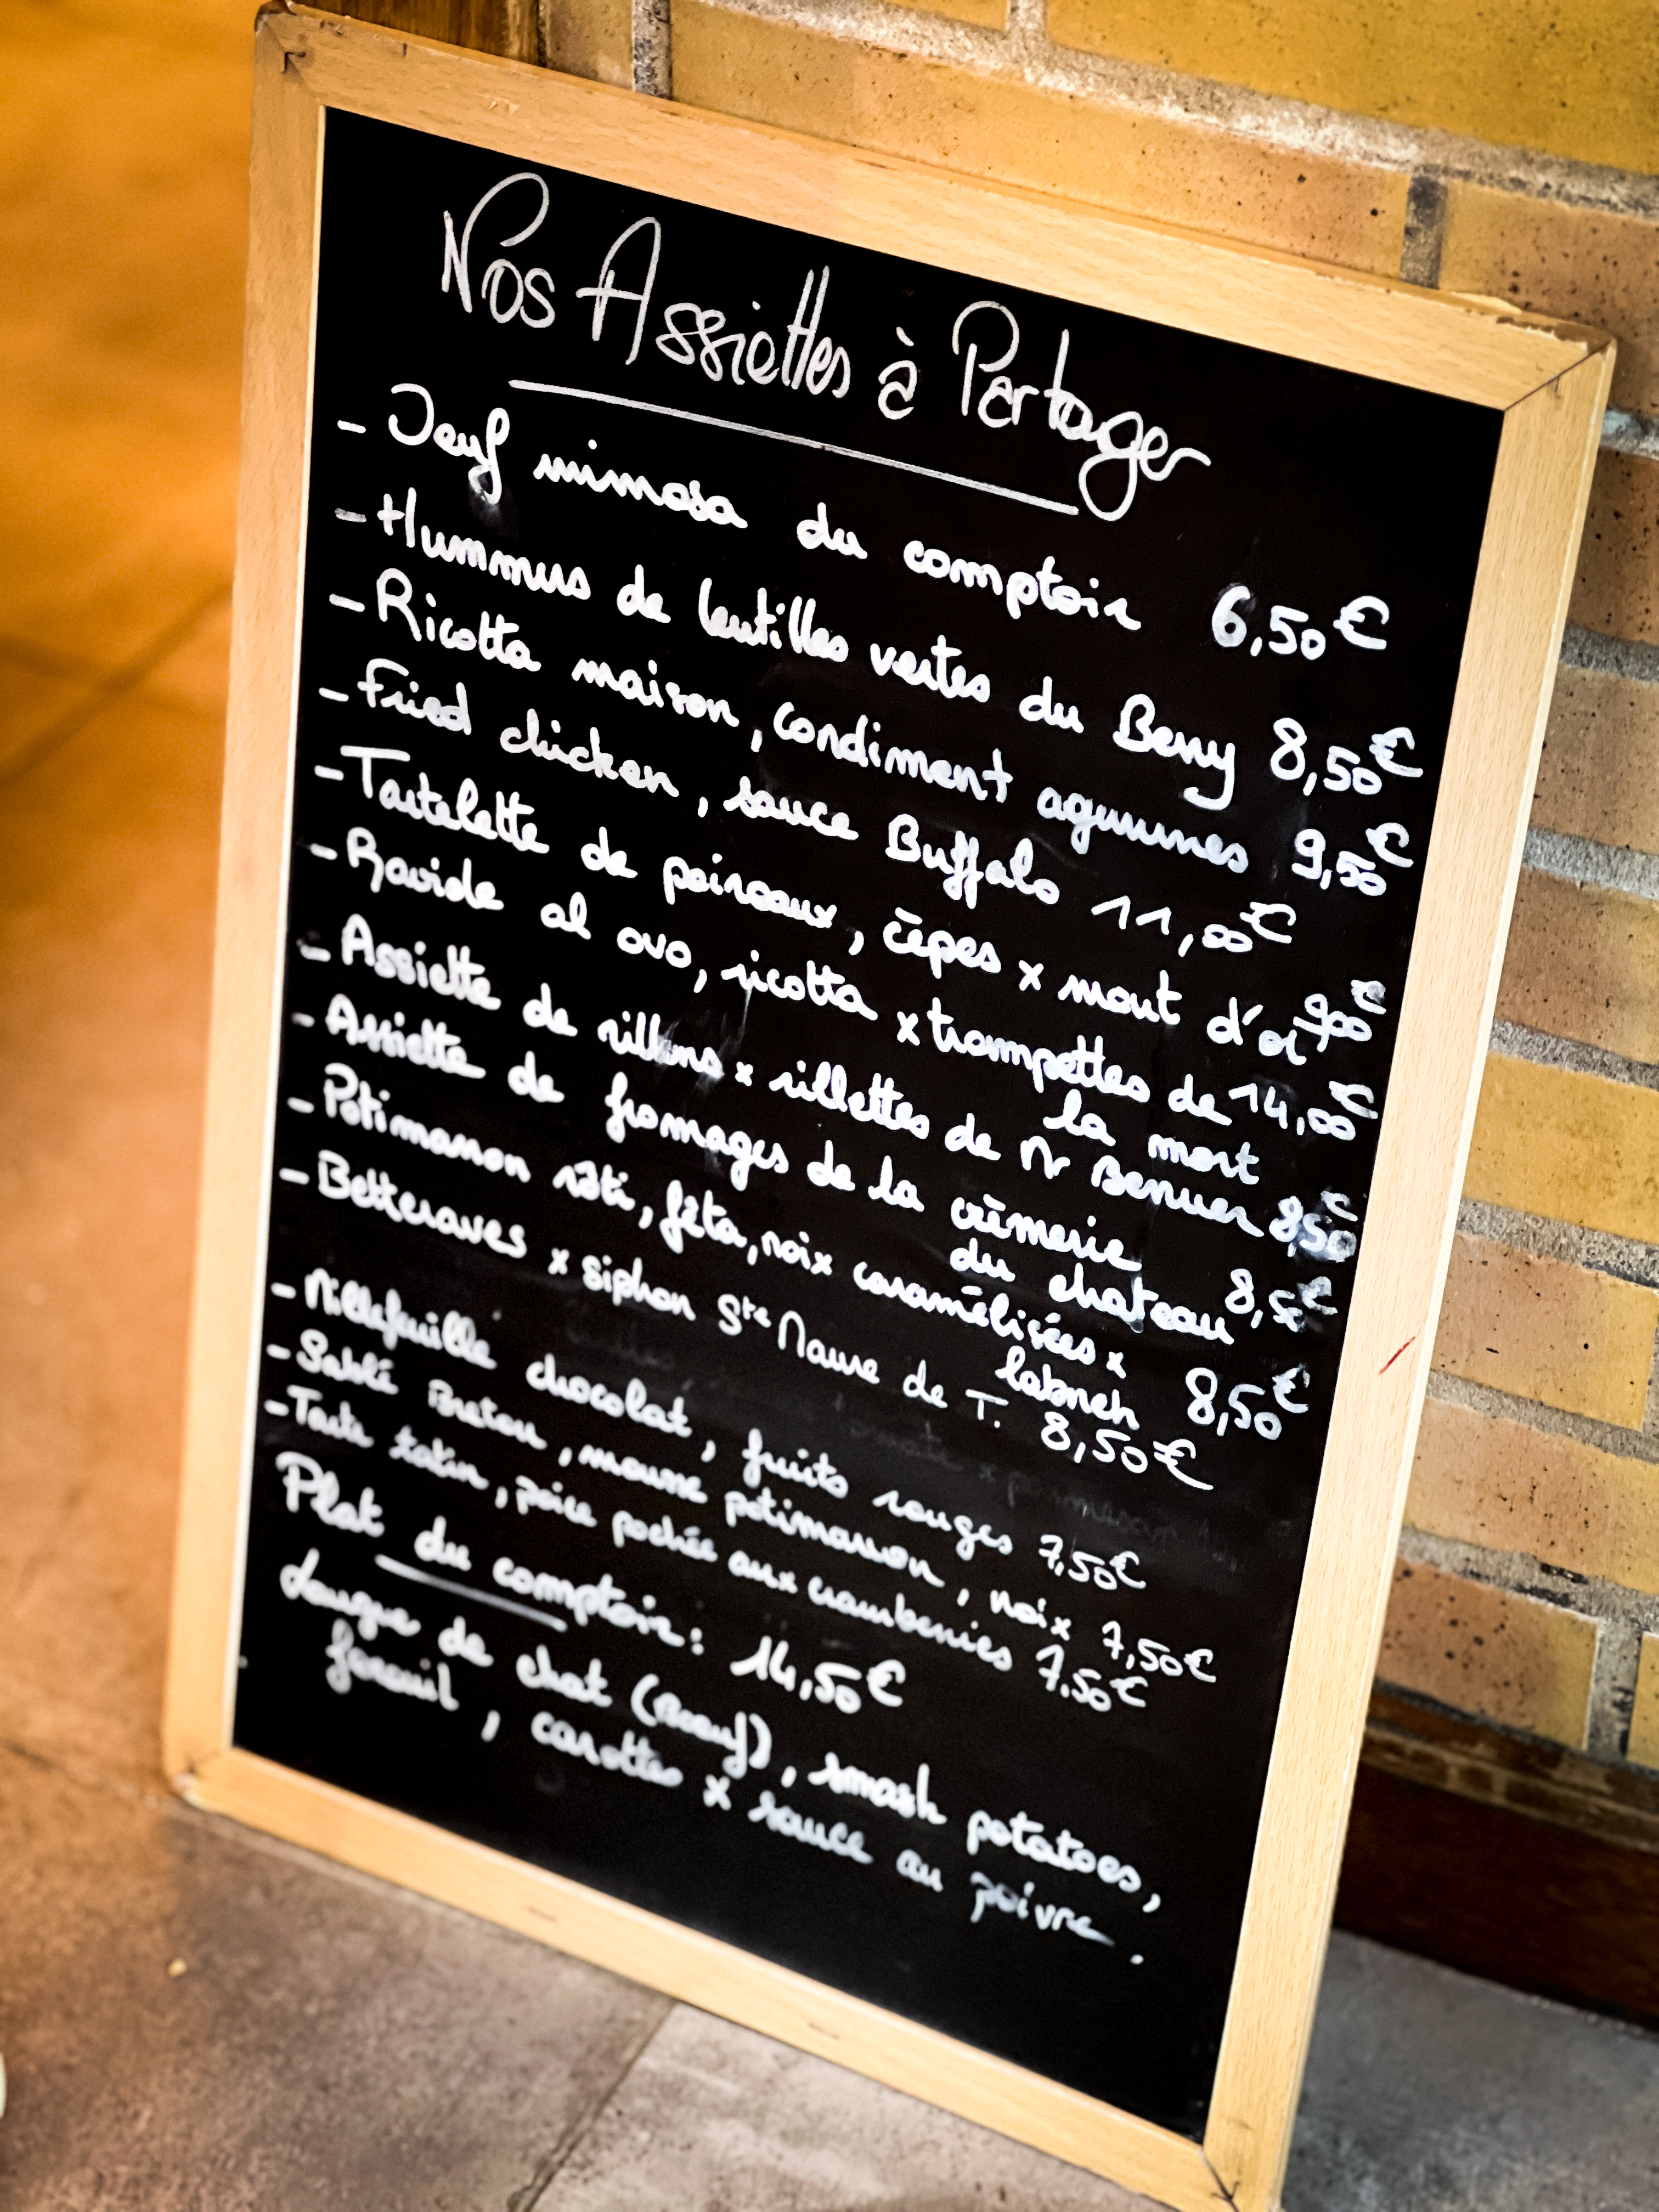 Nos Assiettes à Partager
- Oeuf mimosa du comptoir 6,50€
- Hummus de lentilles vertes du Berry 8,50€
- Ricotta maison, condiment agrumes 9,50€
- Fried chicken, sauce Buffalo 11,00€
- Tartelette de poireaux, cèpes x mont d'or 9,00€
- Raviole al ovo, ricotta x trompettes de 14,00€
la mort
- Assiette de rillons x rillettes de Mr 8,50€
- Assiette de fromages de la crèmerie
du chateau 8,50€
- Potimarron rôti, fêta, noix caramélisées x
labneh 8,50€
- Betteraves x siphon Ste Maure de T. 8,50€
- Millefeuille chocolat, fruits rouges 7,50€
- Sablé Breton, mousse potimarron, noix 7,50€
- Tarte tatin, poire pochée aux cramberries 7,50€
Plat du comptoir: 14,50€
Langue de chat (Boeuf), smash potatoes,
fenouil, carottes x sauce au poivre.